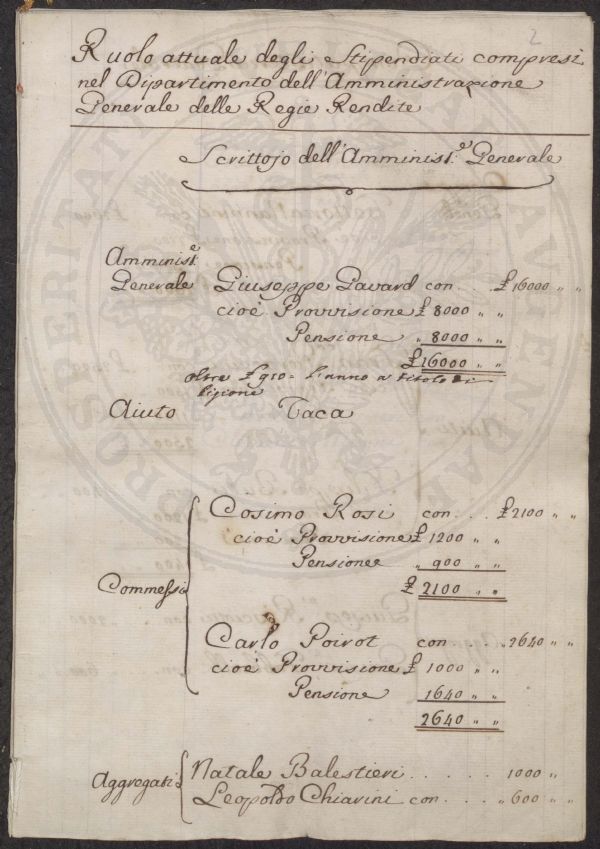 2
Ruolo attuale degli Stipendiati compresi
nel Dipartimento dell'Amministrazione
Generale delle Regie Rendite
Scrittojo dell'Amminist.e Generale
Amminist.e
Generale Giuseppe Gavard con . . . £ 16000 " "
cioè Provvisione £ 8000 " "
Pensione " 8000 " "
£ 16000 " "
oltre £ 910 - l'anno a titolo di
pigione
Aiuto Vaca
Cosimo Rosi con . . . £ 2100 " "
cioè Provvisione £ 1200 " "
Pensione " 900 " "
£ 2100 " "
Commessi
Carlo Poirot con . . . 2640 " "
cioè Provvisione £ 1000 " "
Pensione 1640 " "
2640 " "
Aggregati Natale Balestieri . . . . . 1000 "
Leopoldo Chiarini con . . . " 600 " "
PROSPERITATI AUGENDAE